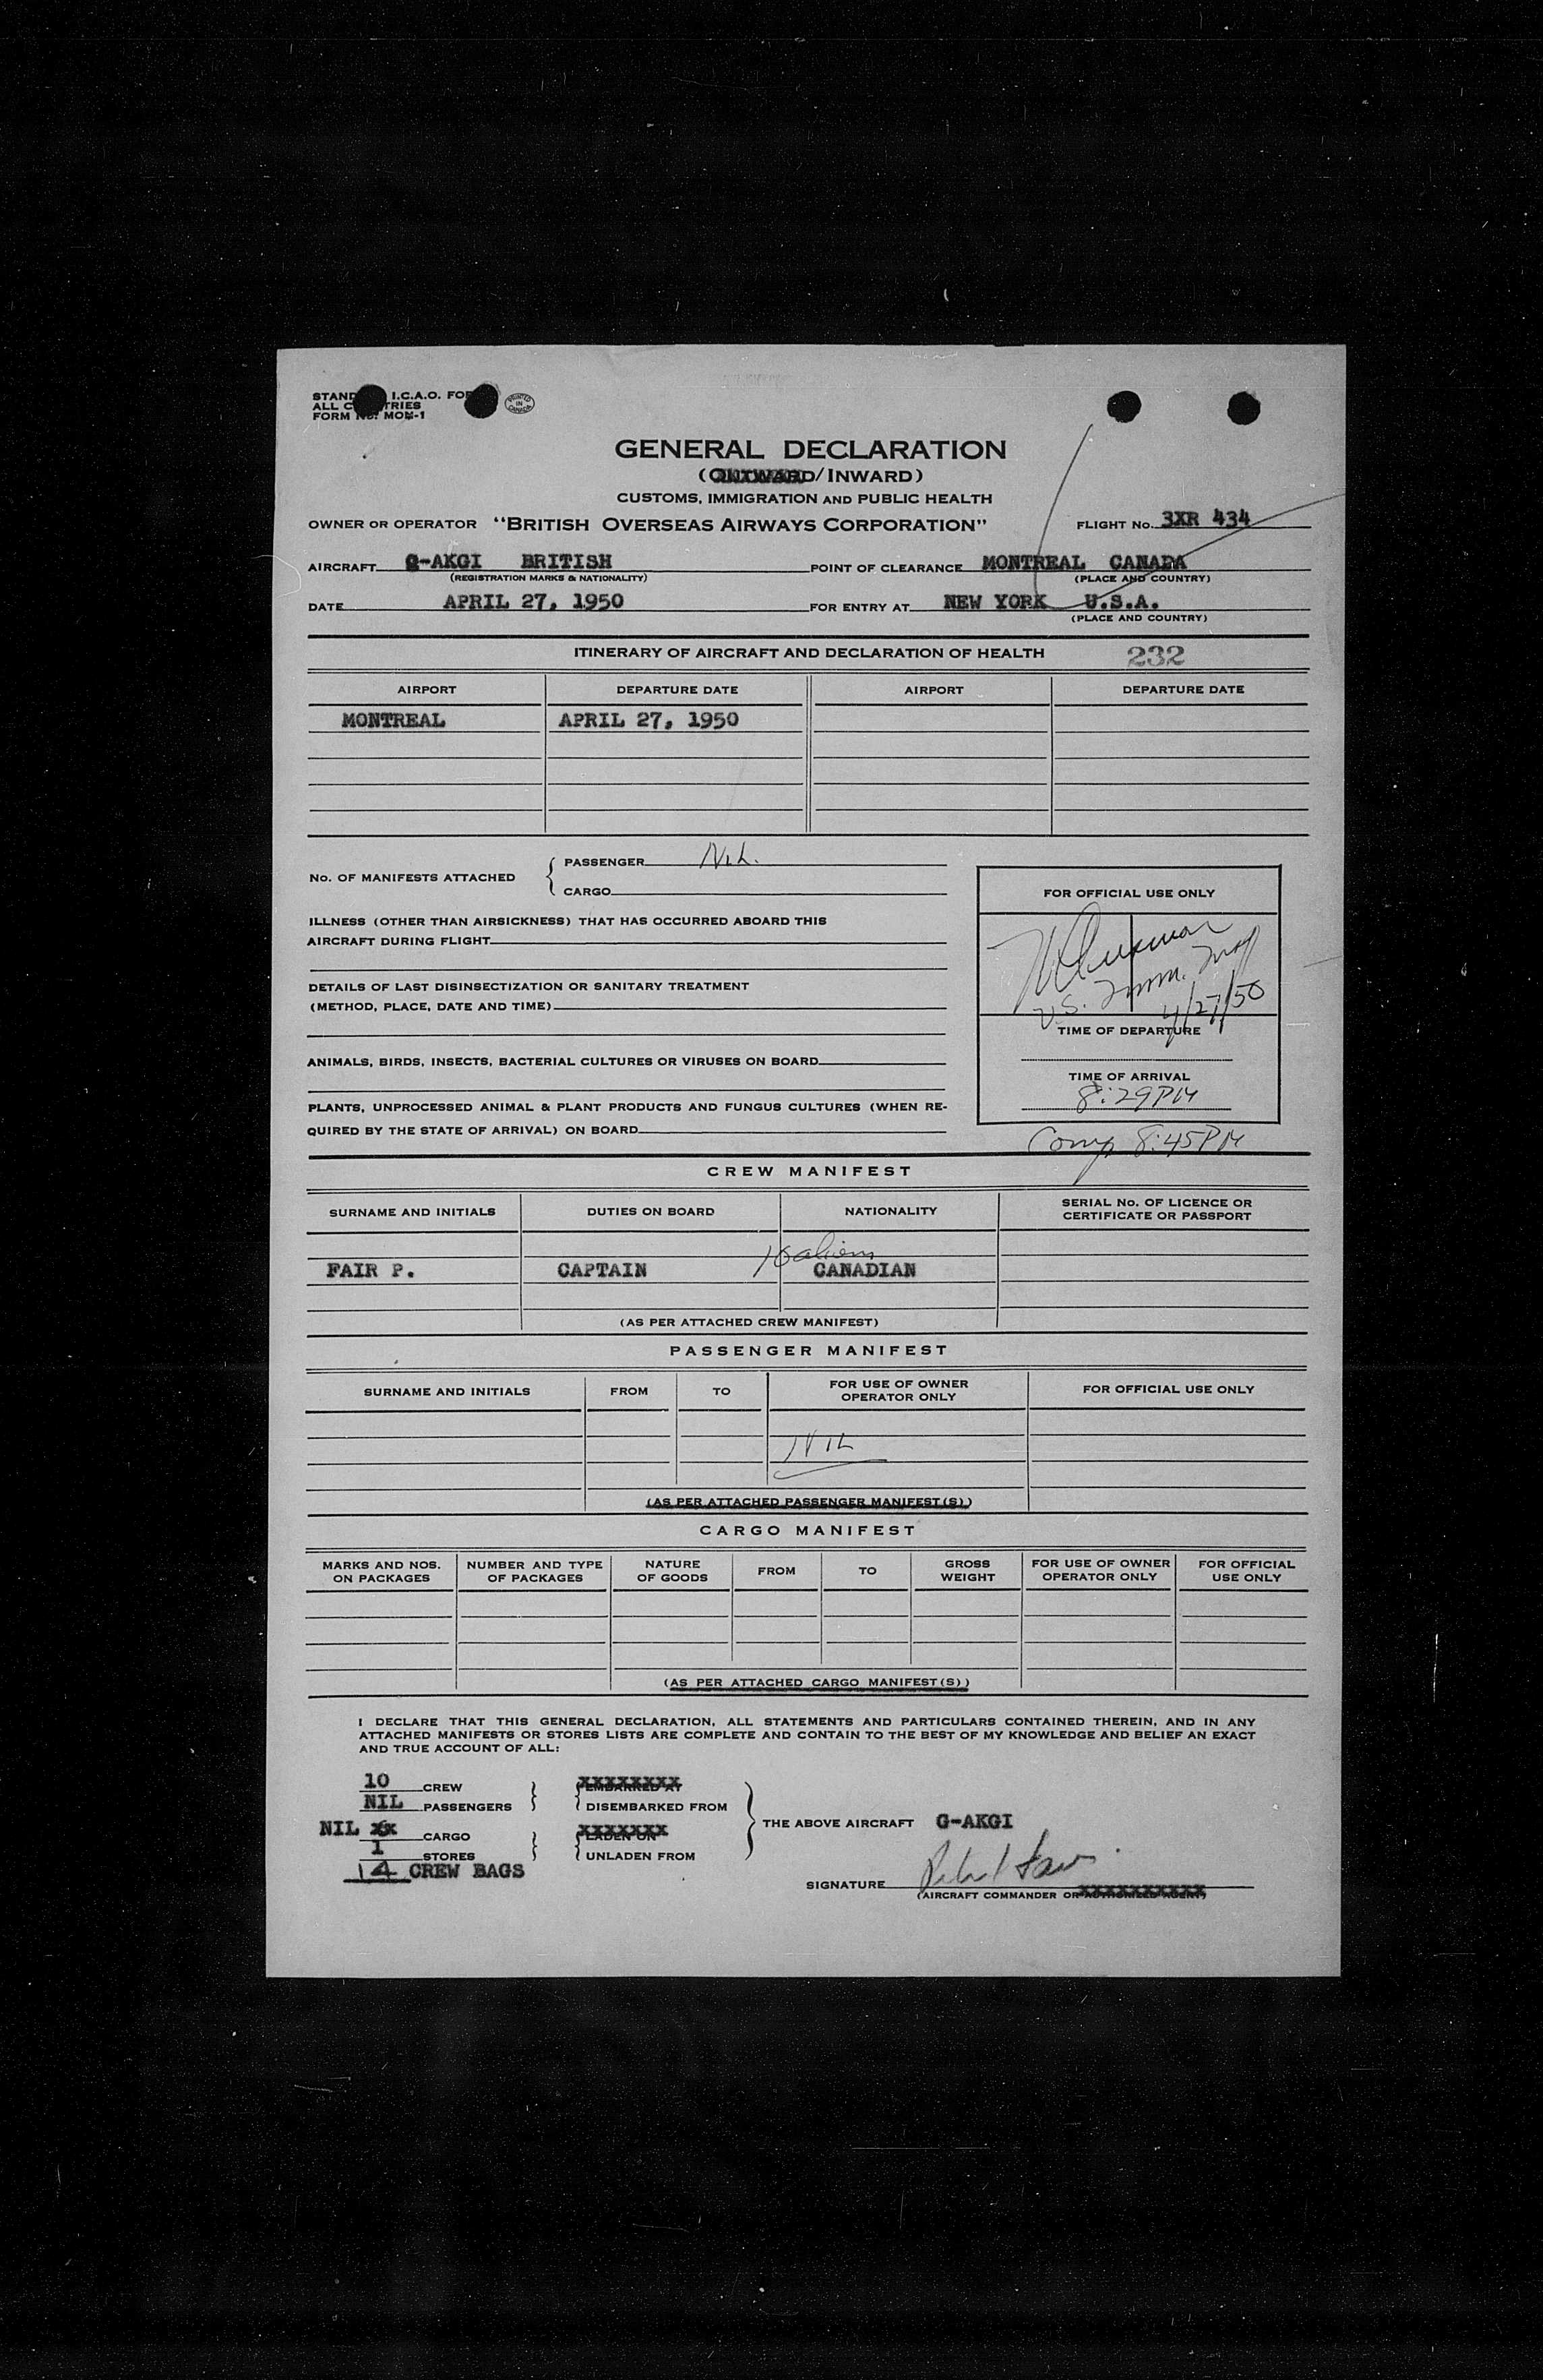 STAND I.C.A.O. FO
ALL C TRIES
FORM No. MON-1
PRINTED IN CANADA
GENERAL DECLARATION
(OUTWARD/INWARD)
CUSTOMS, IMMIGRATION AND PUBLIC HEALTH
OWNER OR OPERATOR "BRITISH OVERSEAS AIRWAYS CORPORATION" FLIGHT No. 3XR 434
AIRCRAFT G-AKGI BRITISH POINT OF CLEARANCE MONTREAL CANADA
(REGISTRATION MARKS & NATIONALITY) (PLACE AND COUNTRY)
DATE APRIL 27, 1950 FOR ENTRY AT NEW YORK U.S.A.
(PLACE AND COUNTRY)
ITINERARY OF AIRCRAFT AND DECLARATION OF HEALTH 232
AIRPORT DEPARTURE DATE AIRPORT DEPARTURE DATE
MONTREAL APRIL 27, 1950
No. OF MANIFESTS ATTACHED
PASSENGER NIL.
CARGO
ILLNESS (OTHER THAN AIRSICKNESS) THAT HAS OCCURRED ABOARD THIS
AIRCRAFT DURING FLIGHT
DETAILS OF LAST DISINSECTIZATION OR SANITARY TREATMENT
(METHOD, PLACE, DATE AND TIME)
ANIMALS, BIRDS, INSECTS, BACTERIAL CULTURES OR VIRUSES ON BOARD
PLANTS, UNPROCESSED ANIMAL & PLANT PRODUCTS AND FUNGUS CULTURES (WHEN RE-
QUIRED BY THE STATE OF ARRIVAL) ON BOARD
FOR OFFICIAL USE ONLY
U.S. Imm. Insp
4/27/50
TIME OF DEPARTURE
TIME OF ARRIVAL
8:29PM
Comp 8:45PM
CREW MANIFEST
SURNAME AND INITIALS DUTIES ON BOARD NATIONALITY SERIAL No. OF LICENCE OR CERTIFICATE OR PASSPORT
10 aliens
FAIR P. CAPTAIN CANADIAN
(AS PER ATTACHED CREW MANIFEST)
PASSENGER MANIFEST
SURNAME AND INITIALS FROM TO FOR USE OF OWNER OPERATOR ONLY FOR OFFICIAL USE ONLY
NIL
(AS PER ATTACHED PASSENGER MANIFEST(S))
CARGO MANIFEST
MARKS AND NOS. ON PACKAGES NUMBER AND TYPE OF PACKAGES NATURE OF GOODS FROM TO GROSS WEIGHT FOR USE OF OWNER OPERATOR ONLY FOR OFFICIAL USE ONLY
(AS PER ATTACHED CARGO MANIFEST(S))
I DECLARE THAT THIS GENERAL DECLARATION, ALL STATEMENTS AND PARTICULARS CONTAINED THEREIN, AND IN ANY
ATTACHED MANIFESTS OR STORES LISTS ARE COMPLETE AND CONTAIN TO THE BEST OF MY KNOWLEDGE AND BELIEF AN EXACT
AND TRUE ACCOUNT OF ALL:
10 CREW EMBARKED AT
NIL PASSENGERS DISEMBARKED FROM
THE ABOVE AIRCRAFT G-AKGI
NIL xx CARGO LADEN ON
1 STORES UNLADEN FROM
14 CREW BAGS
SIGNATURE
(AIRCRAFT COMMANDER OR AUTHORIZED AGENT)